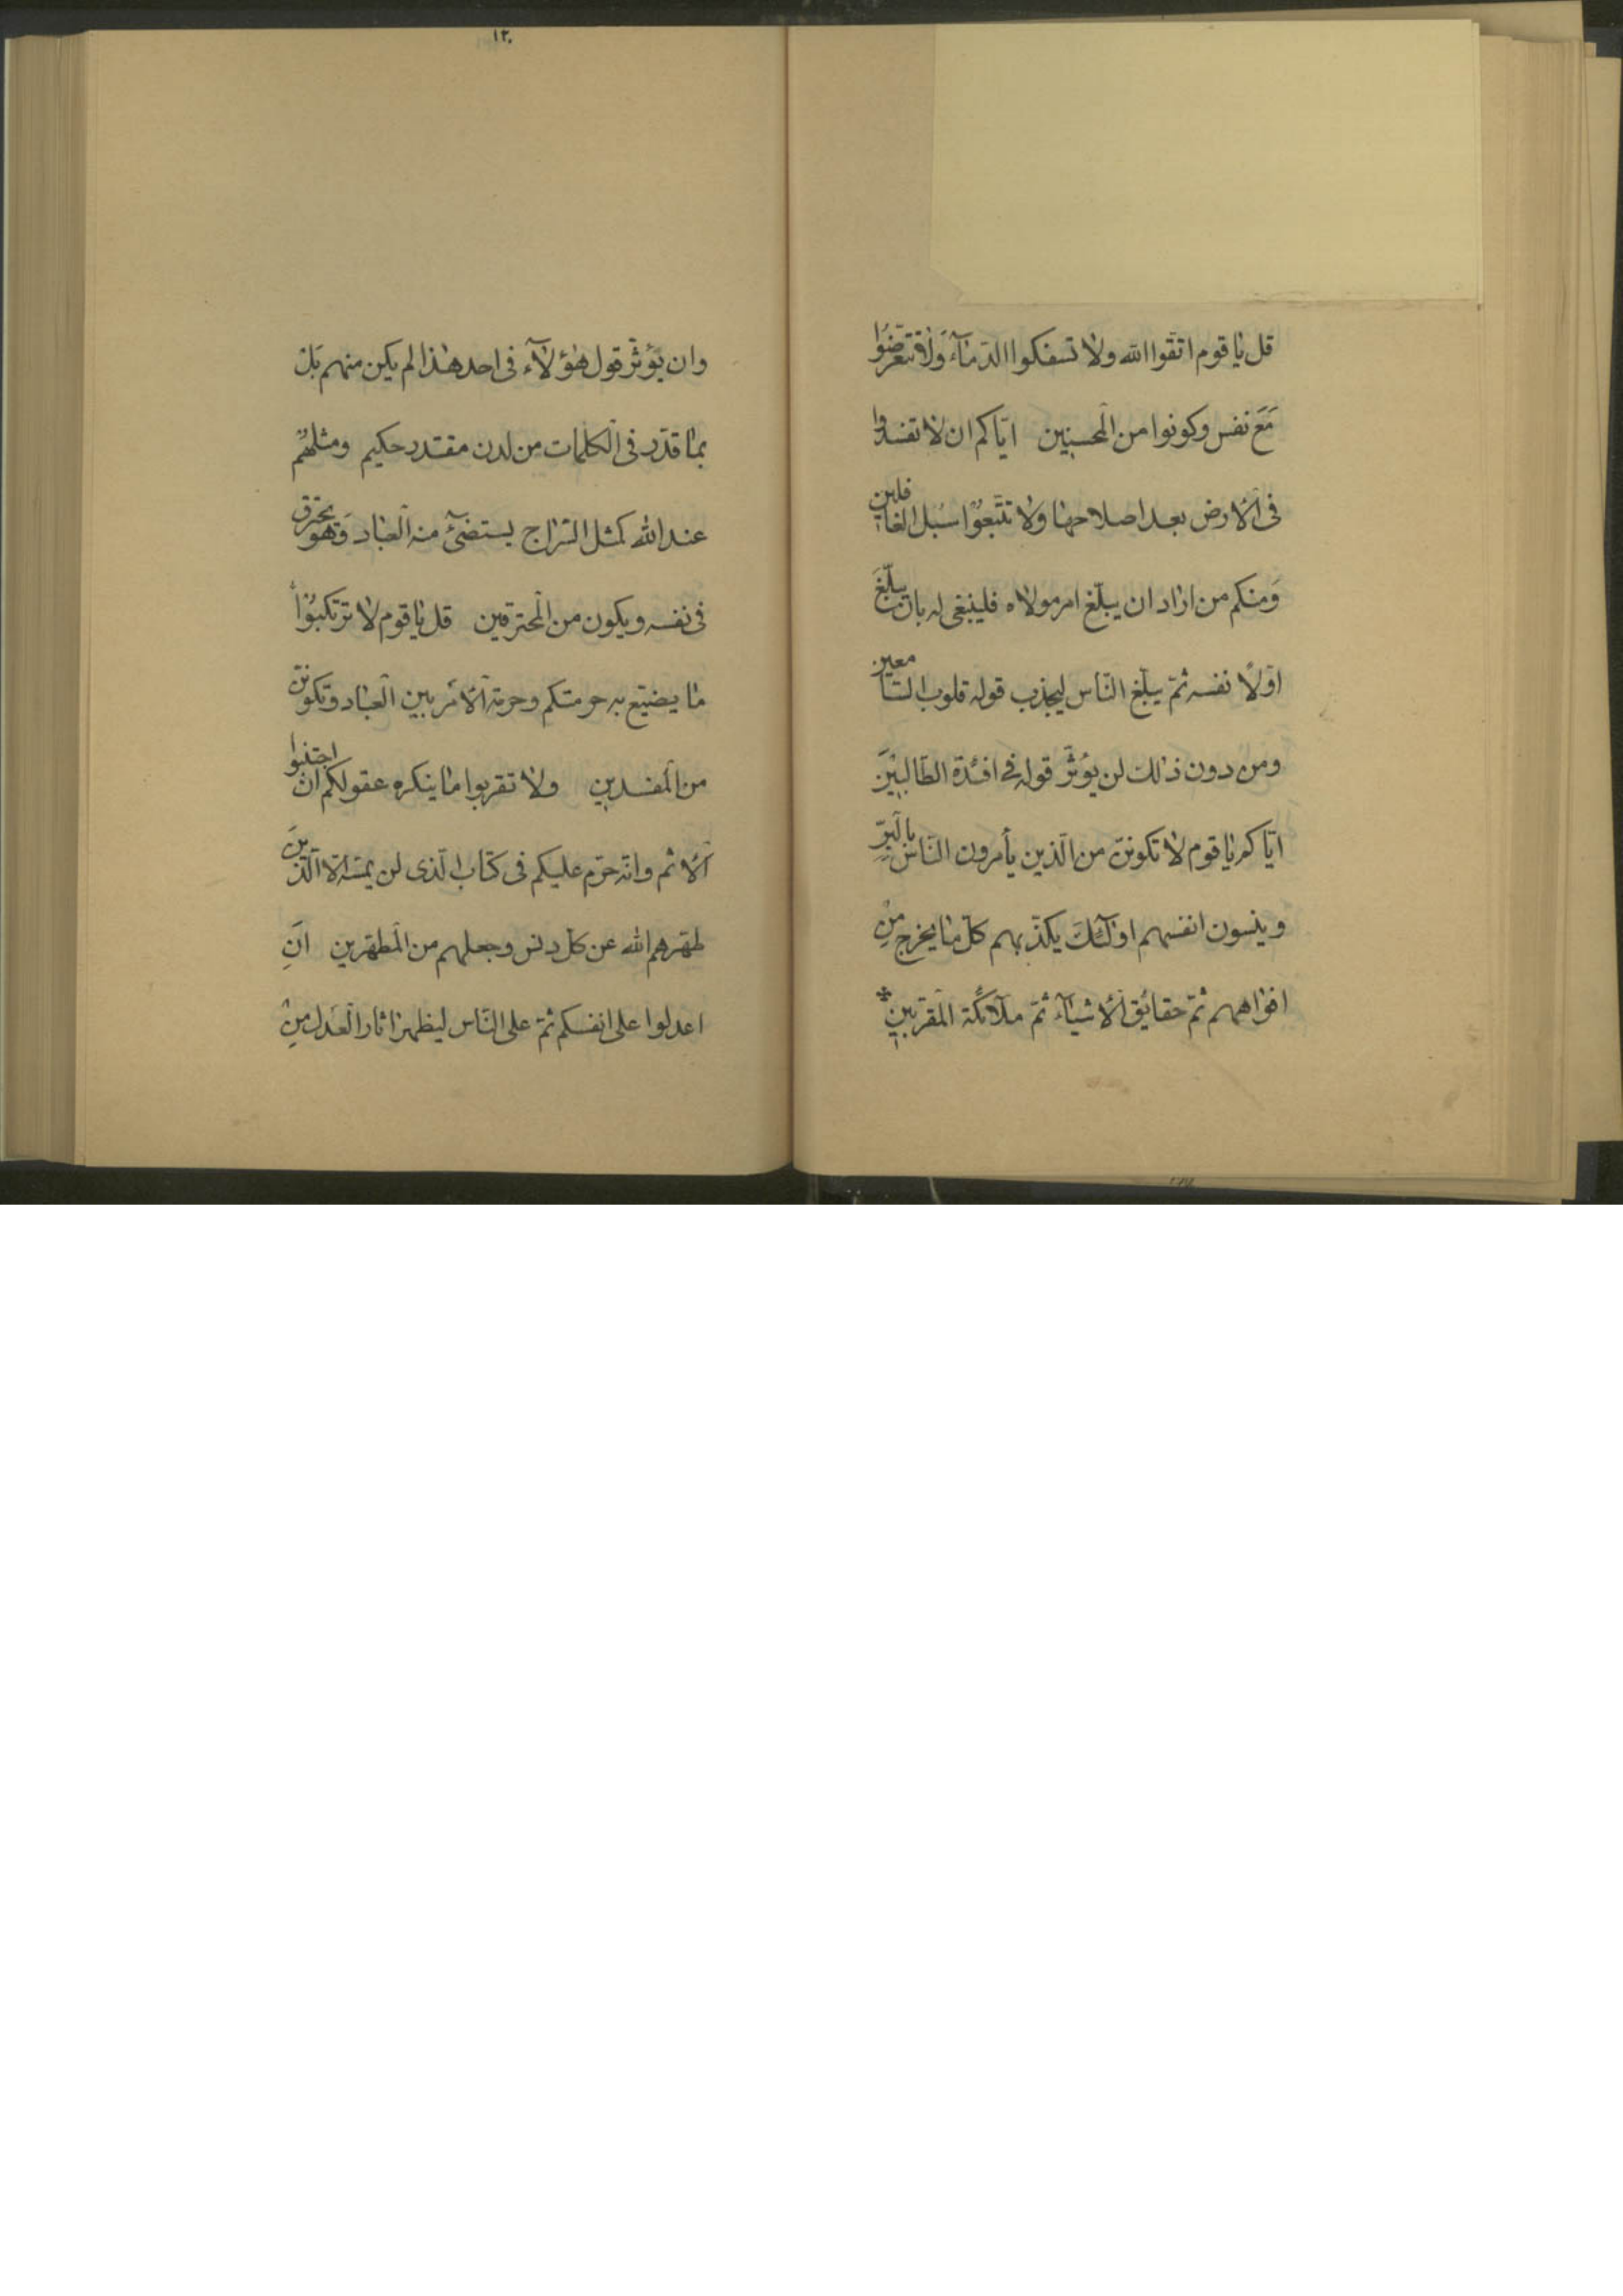 قل یا قوم اتقوا الله ولا تسفکوا الدّمآء ولا تتعرّضوا
مَعَ نفس وکونوا من المحسنین ایّاکم ان لا تفسدوا
فی الأرض بعد اصلاحها ولا تتّبعوا سُبل الغافلین
وَمنکم من اراد ان یبلّغ امر مولاه فلینبغی له بان یبلّغَ
اوّلاً نفسه ثمّ یبلّغ النّاس لیجذب قوله قلوب السّامعین
ومن دون ذلک لن یؤثّر قوله فی افئدة الطّالبینَ
ایّاکم یا قوم لا تکوننّ من الّذین یأمرون النّاس بالبرّ
وینسون انفسهم اولٰئکَ یکذّبهم کلّ ما یخرج مِن
افواههم ثمّ حقایق الأشیآء ثمّ ملآئکة المقرّبین
۱۲۰
وان یؤثّر قول هٰؤلآء فی احد هٰذا لم یکن منهم بَل
بما قدّر فی الکلمات من لدن مقتدر حکیم ومثلهُم
عند الله کمثل السّراج یستضئ منه العباد وَهو یحترق
فی نفسه ویکون من المحترقین قل یا قوم لا ترتکبوا
ما یضیّع به حرمتکم وحرمة الأمر بین العباد وتکوننّ
من المفسدین ولا تقربوا ما ینکره عقولکم ان اجتنبوا
الأثم وانّه حرّم علیکم فی کتاب الّذی لن یمسّه الّا الّذینَ
طهّرهم الله عن کلّ دنس وجعلهم من المطهّرین انِ
اعدلوا علی انفسکم ثمّ علی النّاس لیظهر اثار العَدل مِن